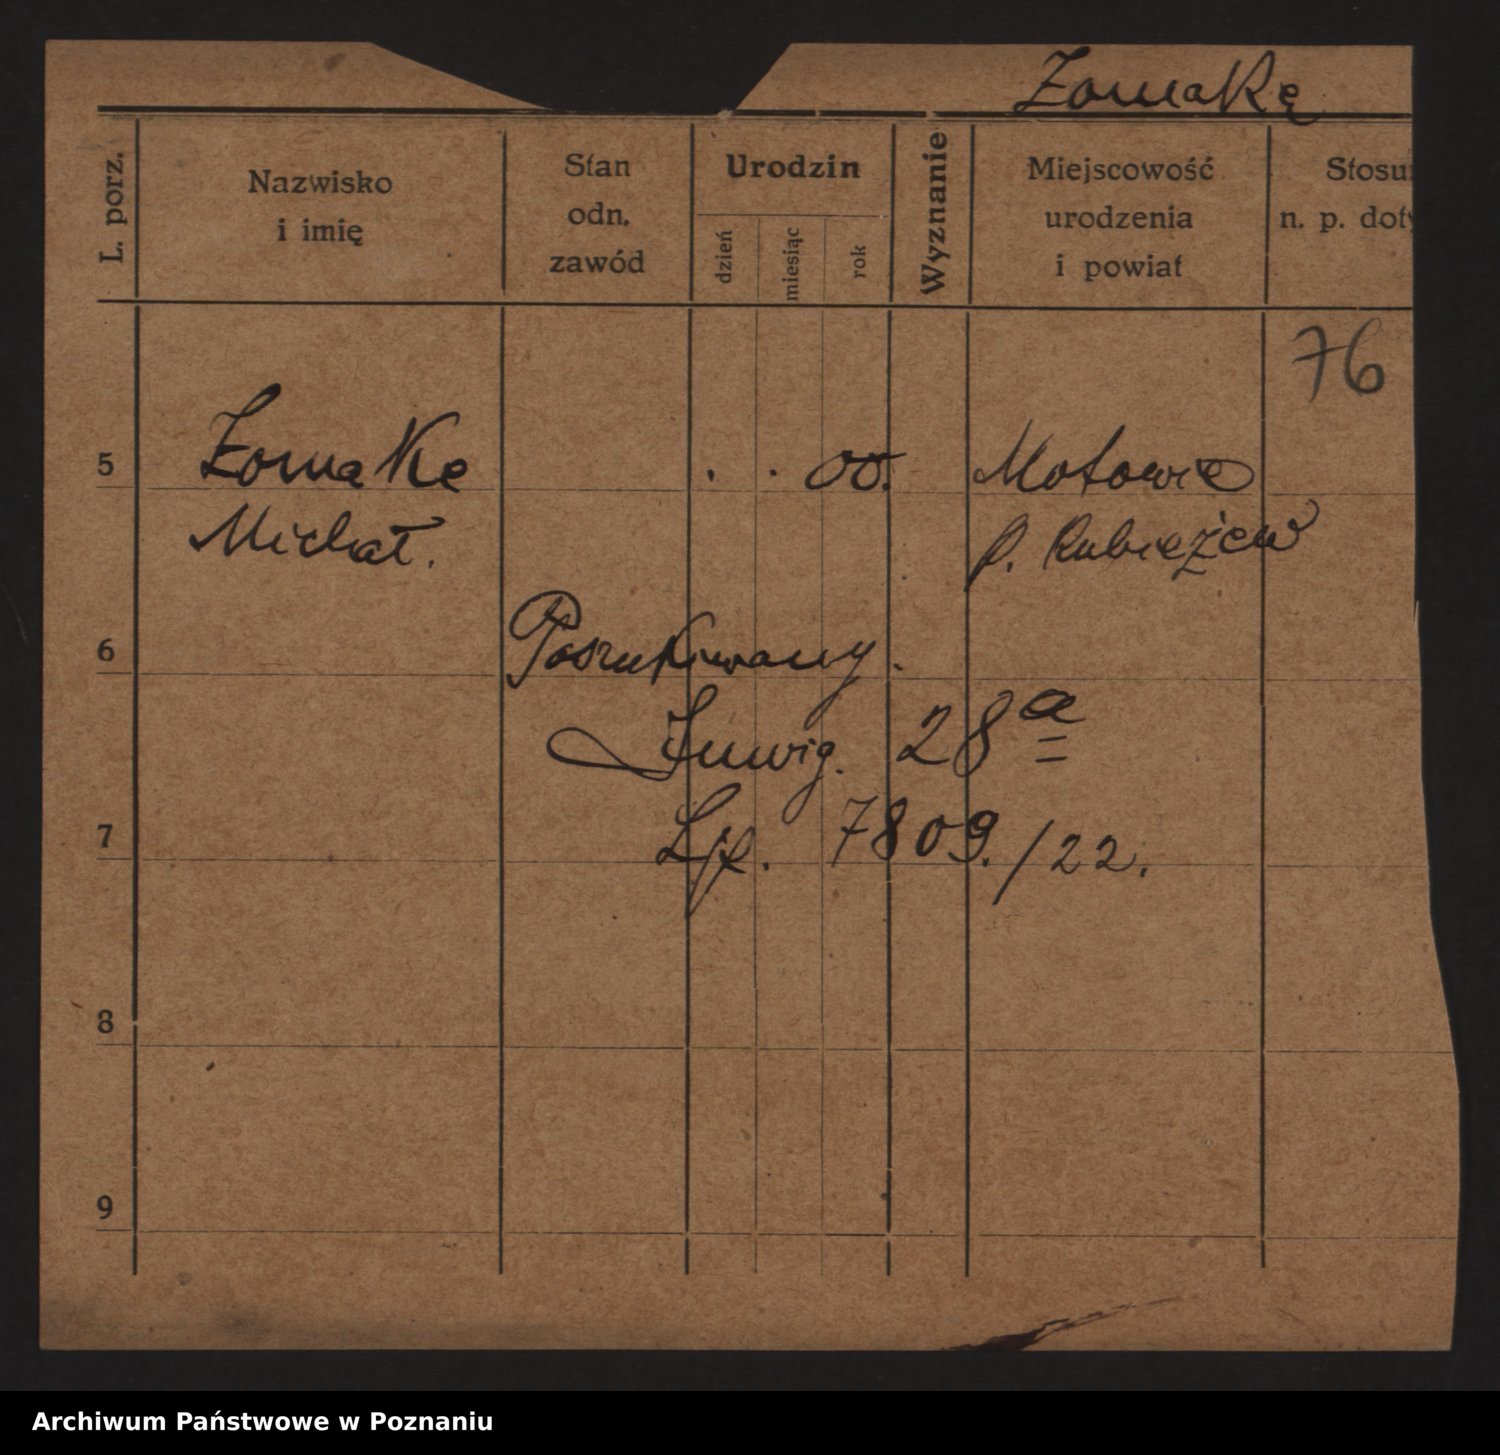 Łomakę
L. porz.
Nazwisko
i imię
Stan
odn.
zawód
Urodzin
dzień
miesiąc
rok
Wyznanie
Miejscowość
urodzenia
i powiat
Stosu
n. p. doty
76
5
Łomake
. . 00.
Motowie
Michał.
p. Rubieżew
6
Poszukiwany.
Inwig. 28 a
7
Ljp. 7809./22.
8
9
Archiwum Państwowe w Poznaniu